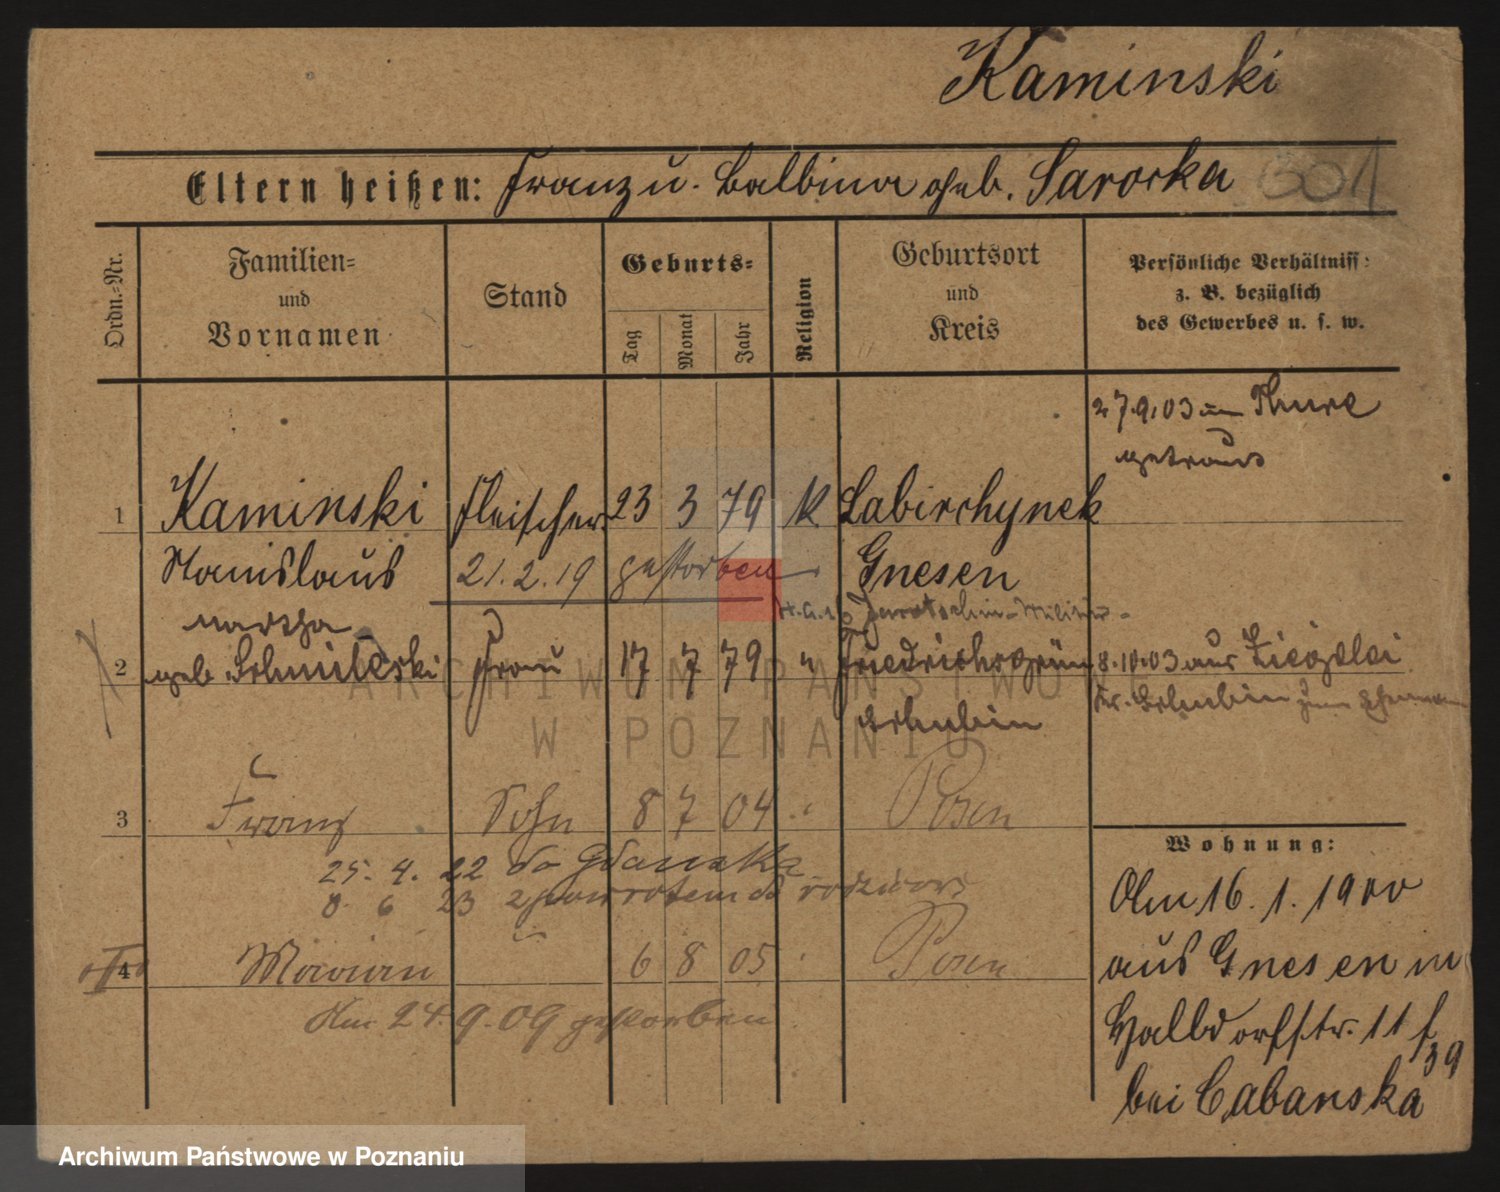 Kaminski
Eltern heißen: Franz u. Balbina geb. Sarocka 301
Ordn.-Nr.
Familien-
und
Vornamen
Stand
Geburts-
Tag
Monat
Jahr
Religion
Geburtsort
und
Kreis
Persönliche Verhältniss:
z. B. bezüglich
des Gewerbes u. s. w.
27.9.03 in
getraut
1 Kaminski Fleischer 23 3 79 K Labischynek
Stanislaus 21.2.19 gestorben Gnesen
Martha
2 geb. Frau 17 7 79 " Friedrichsgrün 8.10.03 aus
Schubin
Kr. Schubin zum Ehemann
3 Franz Sohn 8 7 04 Posen
25. 4. 22 do Gdańska
8. 6 23 z powrotem do rodziców
4 Marian 6 8 05 Posen
Am 24.9.09 gestorben
Wohnung:
Am 16.1.1900
aus Gnesen
Halbdorfstr. 11
39
bei Cabanska
ARCHIWUM PAŃSTWOWE
W POZNANIU
Archiwum Państwowe w Poznaniu